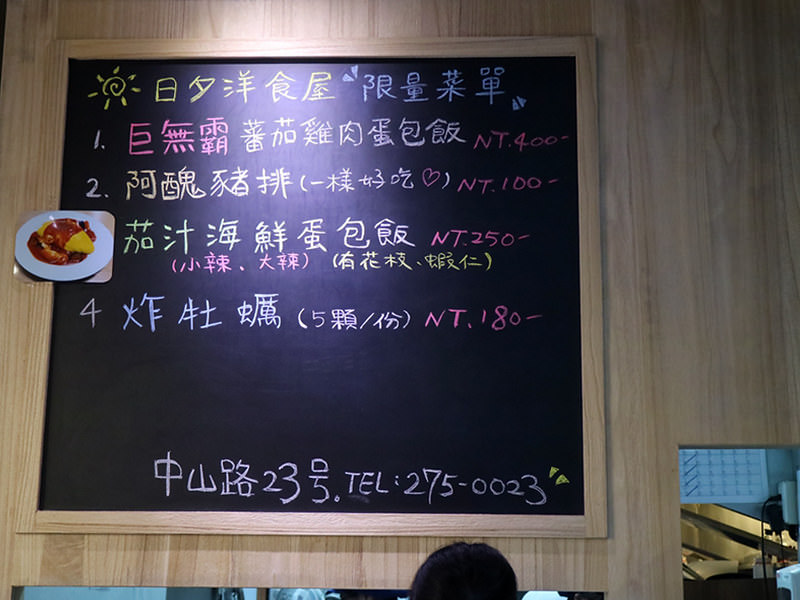 日夕洋食屋 限量菜單
1. 巨無霸蕃茄雞肉蛋包飯 NT.400-
2. 阿醜豬排(一樣好吃♡) NT.100-
茄汁海鮮蛋包飯 NT.250-
(小辣、大辣) (有花枝、蝦仁)
4 炸牡蠣 (5顆/份) NT.180-
中山路23号。TEL:275-0023